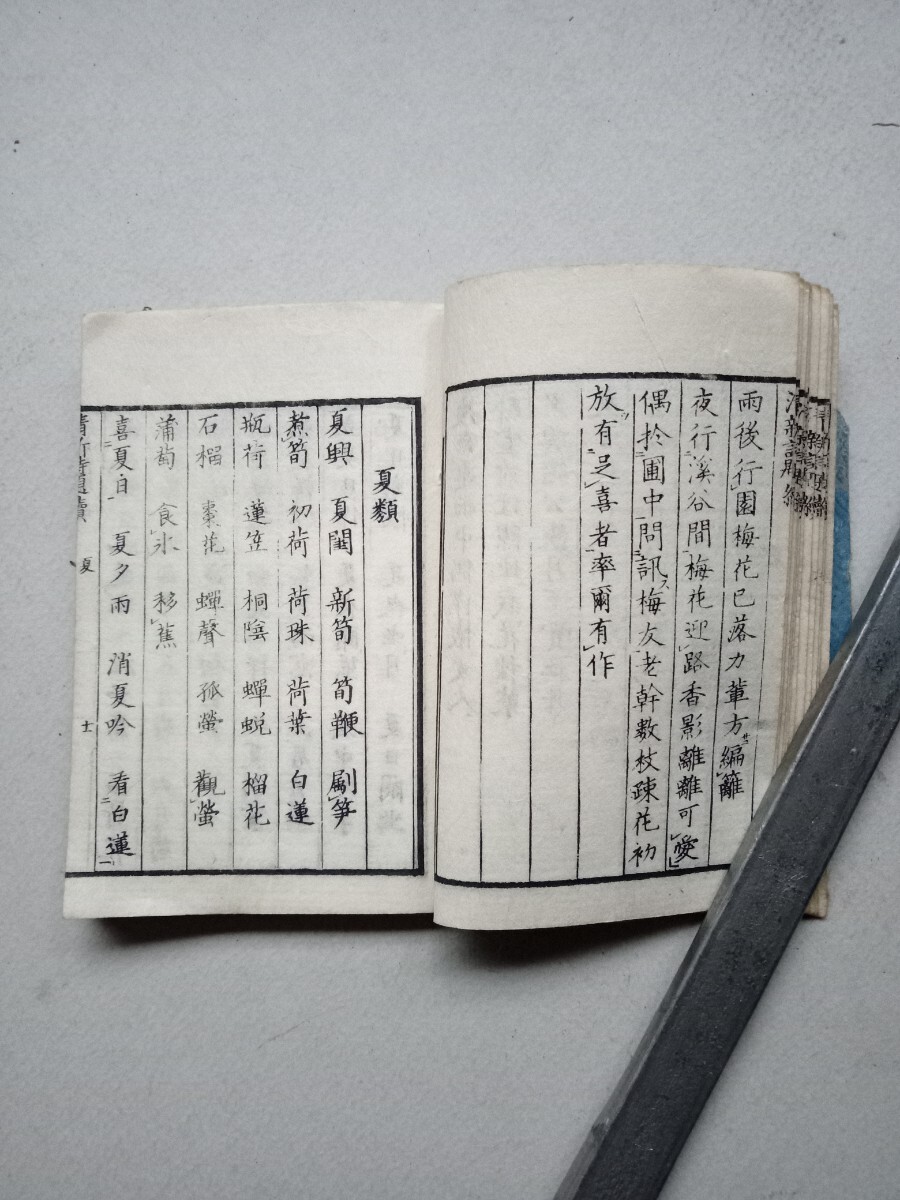 雨後行園梅花已落力輩方編籬
夜行溪谷間梅花迎路香影離離可愛
偶於圃中問訊梅友老幹數枝疎花初
放有足喜者率爾有作
夏類
夏興 夏閨 新筍 筍鞭 斸筍
煮筍 初荷 荷珠 荷葉 白蓮
瓶荷 蓮笠 桐陰 蟬蛻 榴花
石榴 棗花 蟬聲 孤螢 觀螢
蒲萄 食氷 移蕉
喜夏白 夏夕雨 消夏吟 看白蓮
夏 十一